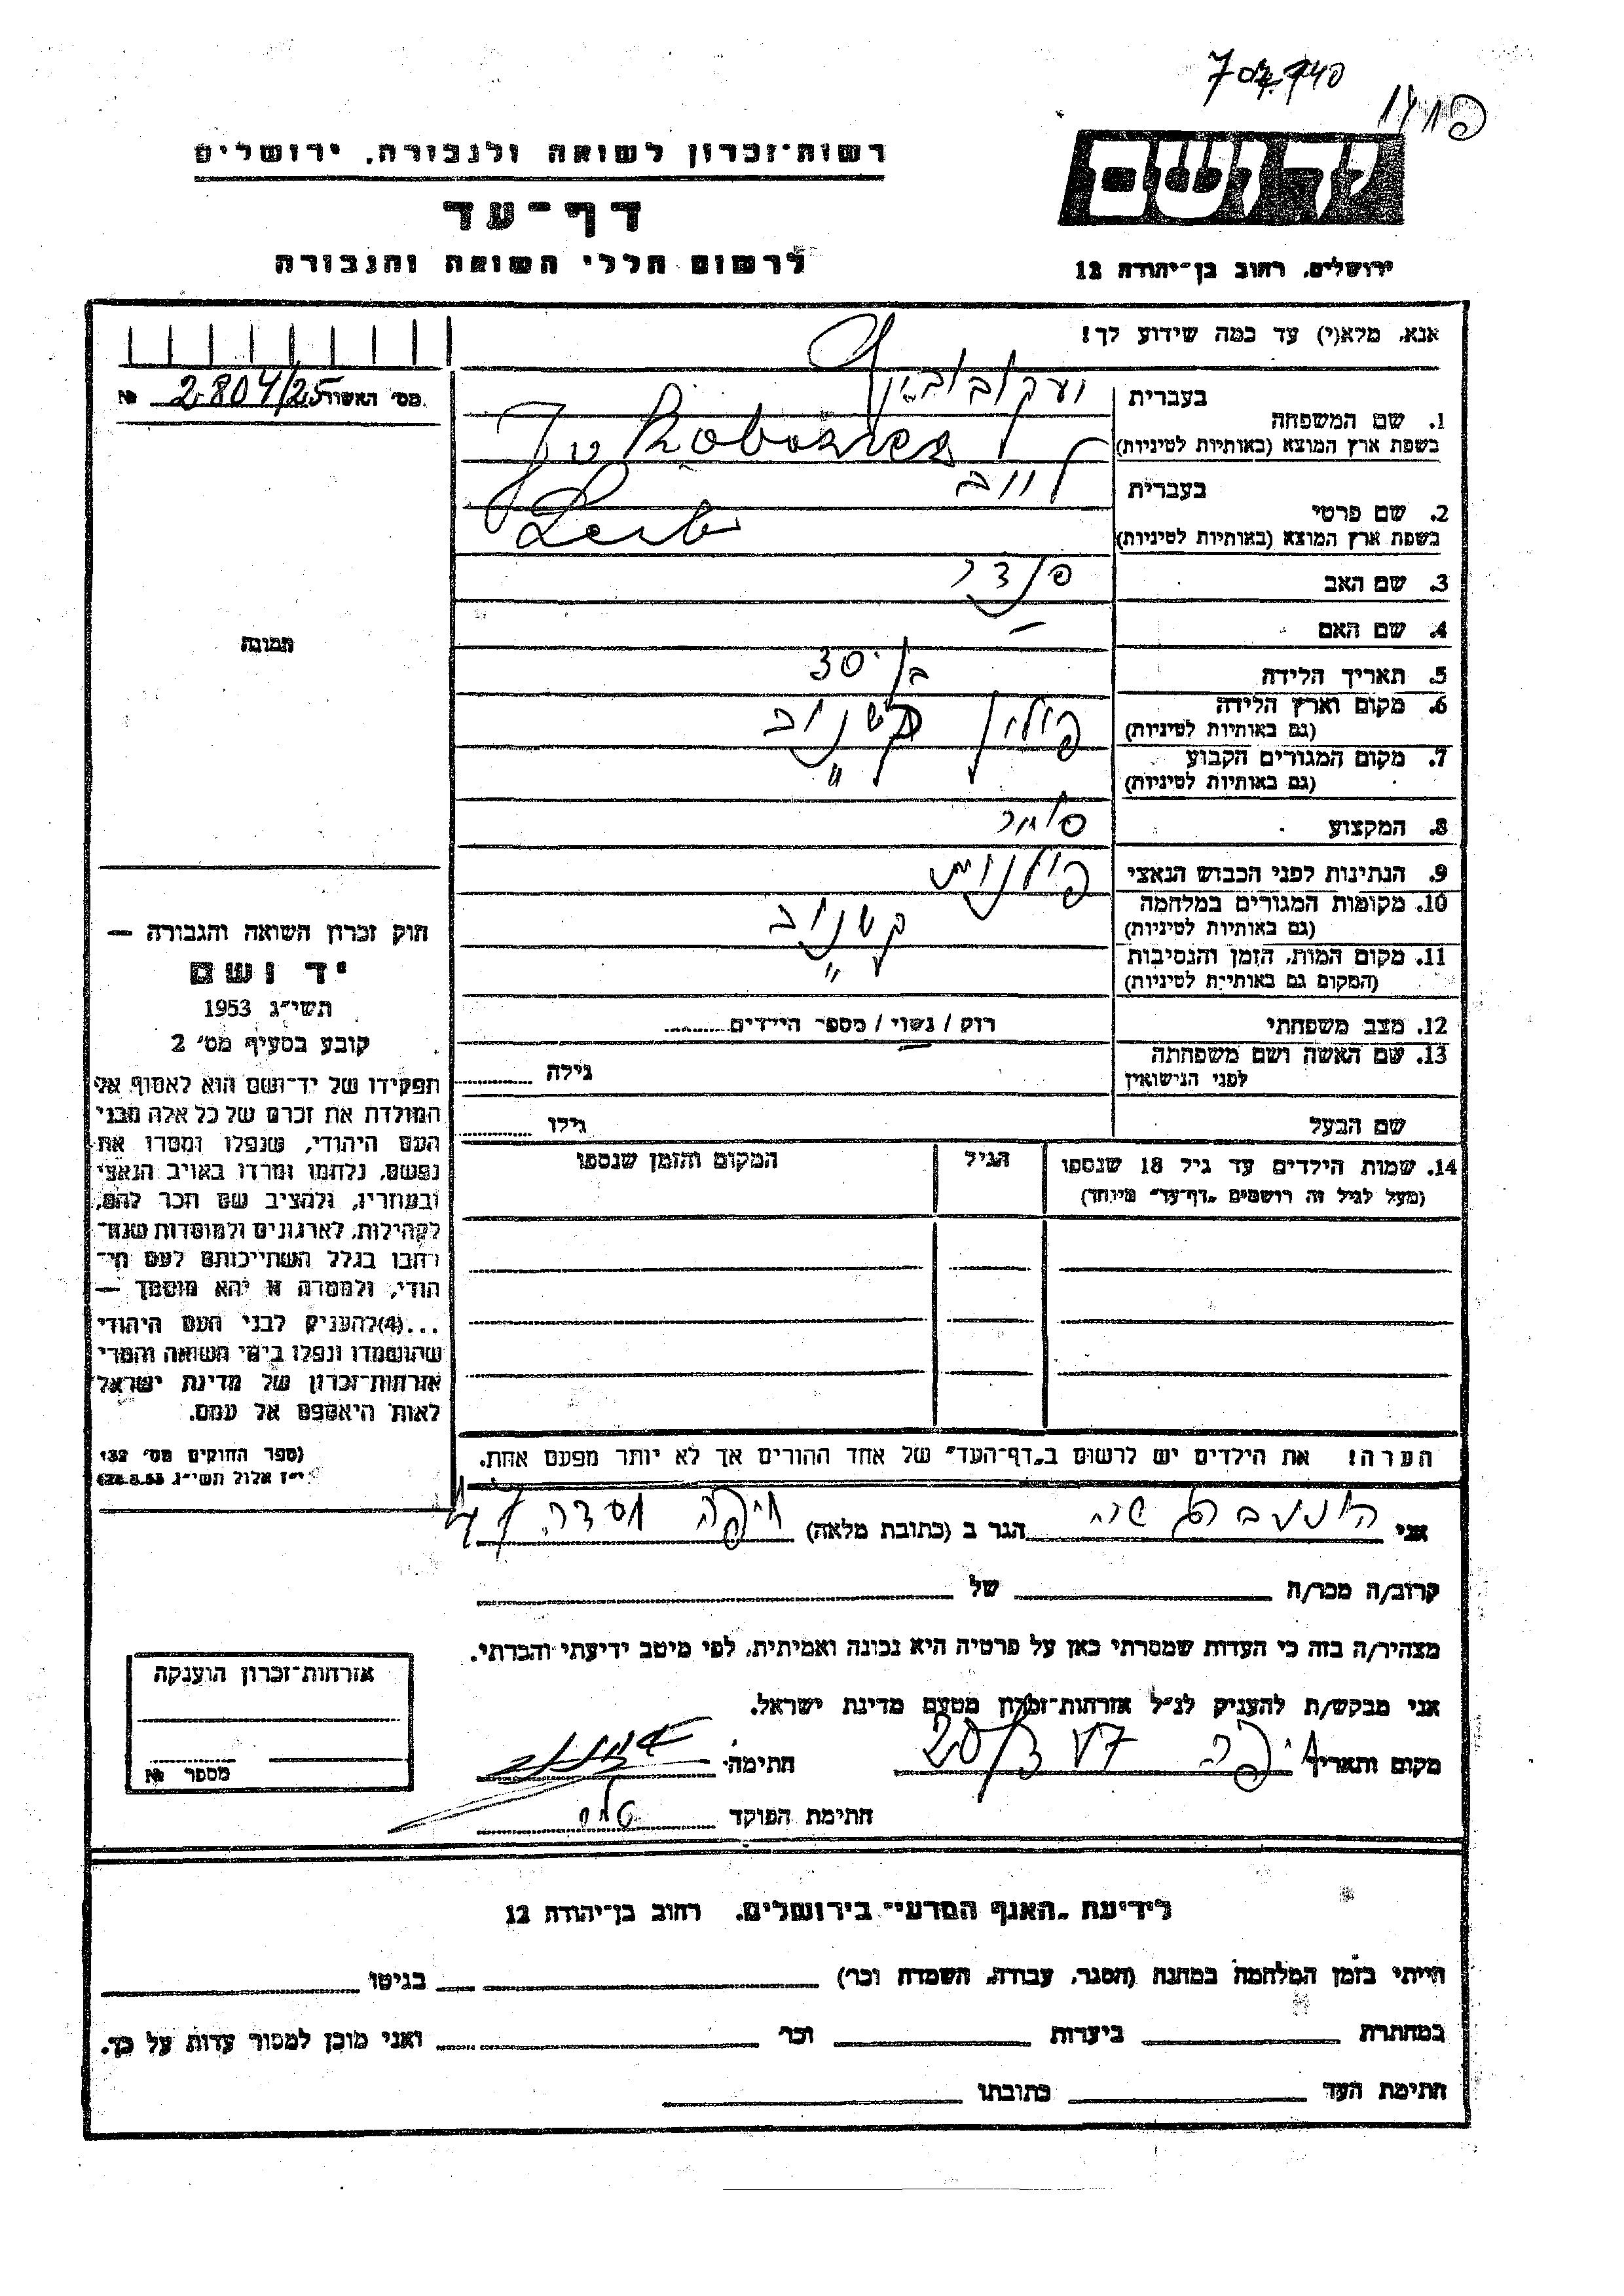 רשות־זכרון לשואה ולגבורה, ירושלים
דף־עד
לרשום חללי השואה והגבורה
ירושלים, רחוב בן־יהודה 12
אנא, מלא(י) עד כמה שידוע לך!
מס׳ האשור 2.804/25 №
1. שם המשפחה
בעברית
בשפת ארץ המוצא (באותיות לטיניות)
2. שם פרטי
בעברית לייב
בשפת ארץ המוצא (באותיות לטיניות) Leib
3. שם האב
4. שם האם —
5. תאריך הלידה בן 30
6. מקום וארץ הלידה
(גם באותיות לטיניות)
פולין קשנוב
7. מקום המגורים הקבוע
(גם באותיות לטיניות)
"
8. המקצוע סוחר
9. הנתינות לפני הכבוש הנאצי פולנית
10. מקומות המגורים במלחמה
(גם באותיות לטיניות)
קשנוב
11. מקום המות, הזמן והנסיבות
(המקום גם באותיות לטיניות)
"
12. מצב משפחתי רוק / נשוי / מספר הילדים
13. שם האשה ושם משפחתה
לפני הנישואין
גילה
שם הבעל גילו
14. שמות הילדים עד גיל 18 שנספו
(מעל לגיל זה רושמים „דף־עד״ מיוחד)
הגיל
המקום והזמן שנספו
הערה! את הילדים יש לרשום ב„דף־העד״ של אחד ההורים אך לא יותר מפעם אחת.
תמונה
חוק זכרון השואה והגבורה —
יד ושם
תשי״ג 1953
קובע בסעיף מס׳ 2
תפקידו של יד־ושם הוא לאסוף אל
המולדת את זכרם של כל אלה מבני
העם היהודי, שנפלו ומסרו את
נפשם, נלחמו ומרדו באויב הנאצי
ובעוזריו, ולהציב שם וזכר להם,
לקהילות, לארגונים ולמוסדות שנח־
רבו בגלל השתייכותם לעם הי־
הודי, ולמטרה זו יהא מוסמך —
...(4)להעניק לבני העם היהודי
שהושמדו ונפלו בימי השואה והמרי
אזרחות־זכרון של מדינת ישראל
לאות היאספם אל עמם.
(ספר החוקים מס׳ 132
י״ז אלול תשי״ג 28.8.53)
אני
הגר ב (כתובת מלאה) חיפה
קרוב/ה מכר/ה של
מצהיר/ה בזה כי העדות שמסרתי כאן על פרטיה היא נכונה ואמיתית, לפי מיטב ידיעתי והכרתי.
אני מבקש/ת להעניק לנ״ל אזרחות־זכרון מטעם מדינת ישראל.
מקום ותאריך חיפה
חתימה:
חתימת הפוקד
אזרחות־זכרון הוענקה
מספר №
לידיעת „האגף המדעי״ בירושלים. רחוב בן־יהודה 12
הייתי בזמן המלחמה במחנה (הסגר, עבודה, השמדה וכו׳) בגיטו
במחתרת ביערות וכו׳ ואני מוכן למסור עדות על כך.
חתימת העד כתובתו